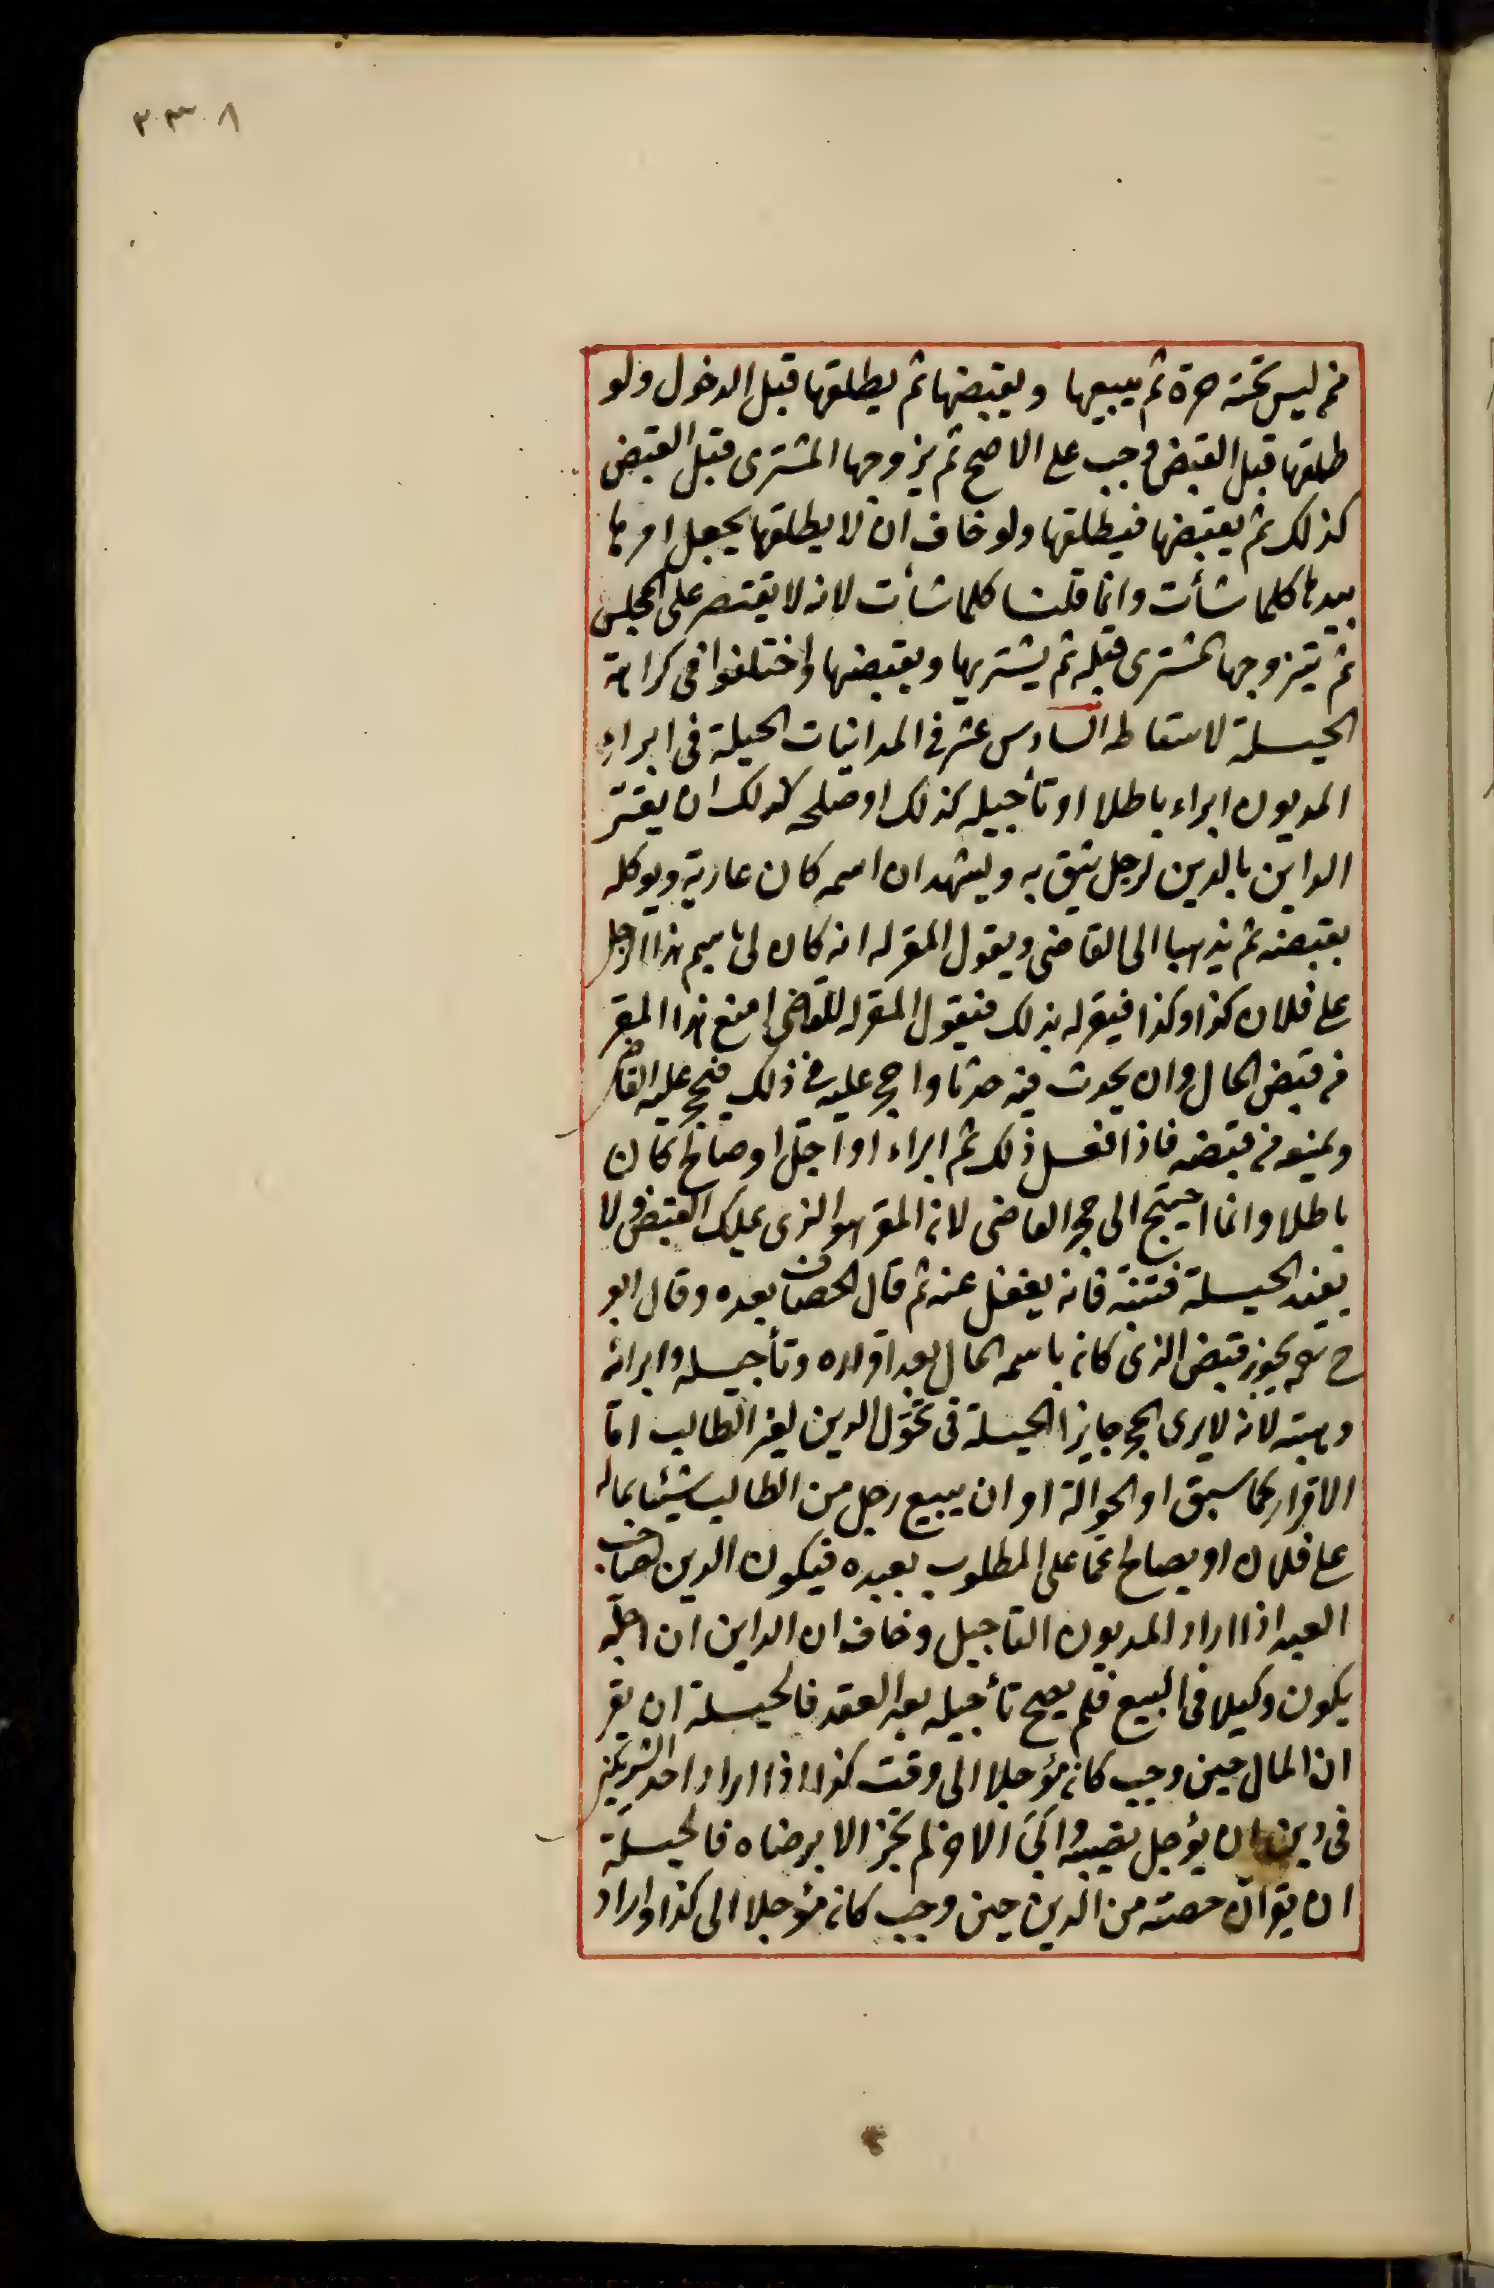 ٣٣٨
ممن ليس تحته حرة ثم يبيعها ويقبضها ثم يطلقها قبل الدخول ولو
طلقها قبل القبض وجب على الاصح ثم يزوجها المشترى قبل القبض
كذلك ثم يقبضها فيطلقها ولو خاف ان لا يطلقها يجعل امرها
بيدها كلما شأت وانما قلنا كلما شأت لانه لا يقتصر على المجلس
ثم يتزوجها المشترى قبله ثم يشتريها ويقبضها واختلفوا فى كراهة
الحيلة لاسقاطه السادس عشر فى المداينات الحيلة فى ابراء
المديون ابراء باطلا او تأجيله كذلك او صلحه كذلك ان يقرّ
الداين بالدين لرجل يثق به ويشهد ان اسمه كان عارية ويوكله
بقبضه ثم يذهبا الى القاضى ويقول المقر له انه كان لى باسم هذا الرجل
على فلان كذا وكذا فيقر له بذلك فيقول المقر له للقاضى امنع هذا المقر
من قبض المال وان يحدث فيه حدثا واحجر عليه فى ذلك فيحجر عليه القاضى
ويمنعه من قبضه فاذا فعل ذلك ثم ابراء او اجّل او صالح كان
باطلا وانما احتيج الى حجر القاضى لان المقر هو الذى يملك القبض فلا
يفيد الحيلة فتنبّه فانه يغفل عنه ثم قال الخصاف بعده وقال ابو
ح يجوز قبض الذى كان باسمه المال بعد اقراره وتأجيله وابرائه
وهبته لانه لا يرى الحجر جايزا الحيلة فى تحوّل الدين لغير الطالب امّا
الاقرار كما سبق او الحوالة او ان يبيع رجل من الطالب شيئا بماله
على فلان او يصالح عمّا على المطلوب بعبده فيكون الدين لصاحب
العبد اذا اراد المديون التاجيل وخاف ان الداين ان اجّله
يكون وكيلا فى البيع فلم يصح تأجيله بعد العقد فالحيلة ان يقر
ان المال حين وجب كان مؤجلا الى وقت كذا اذا اراد احد الشريكين
فى دين ان يؤجل نصيبه وابى الاخر لم يجز الا برضاه فالحيلة
ان يقر ان حصته من الدين حين وجب كان مؤجلا الى كذا واراد